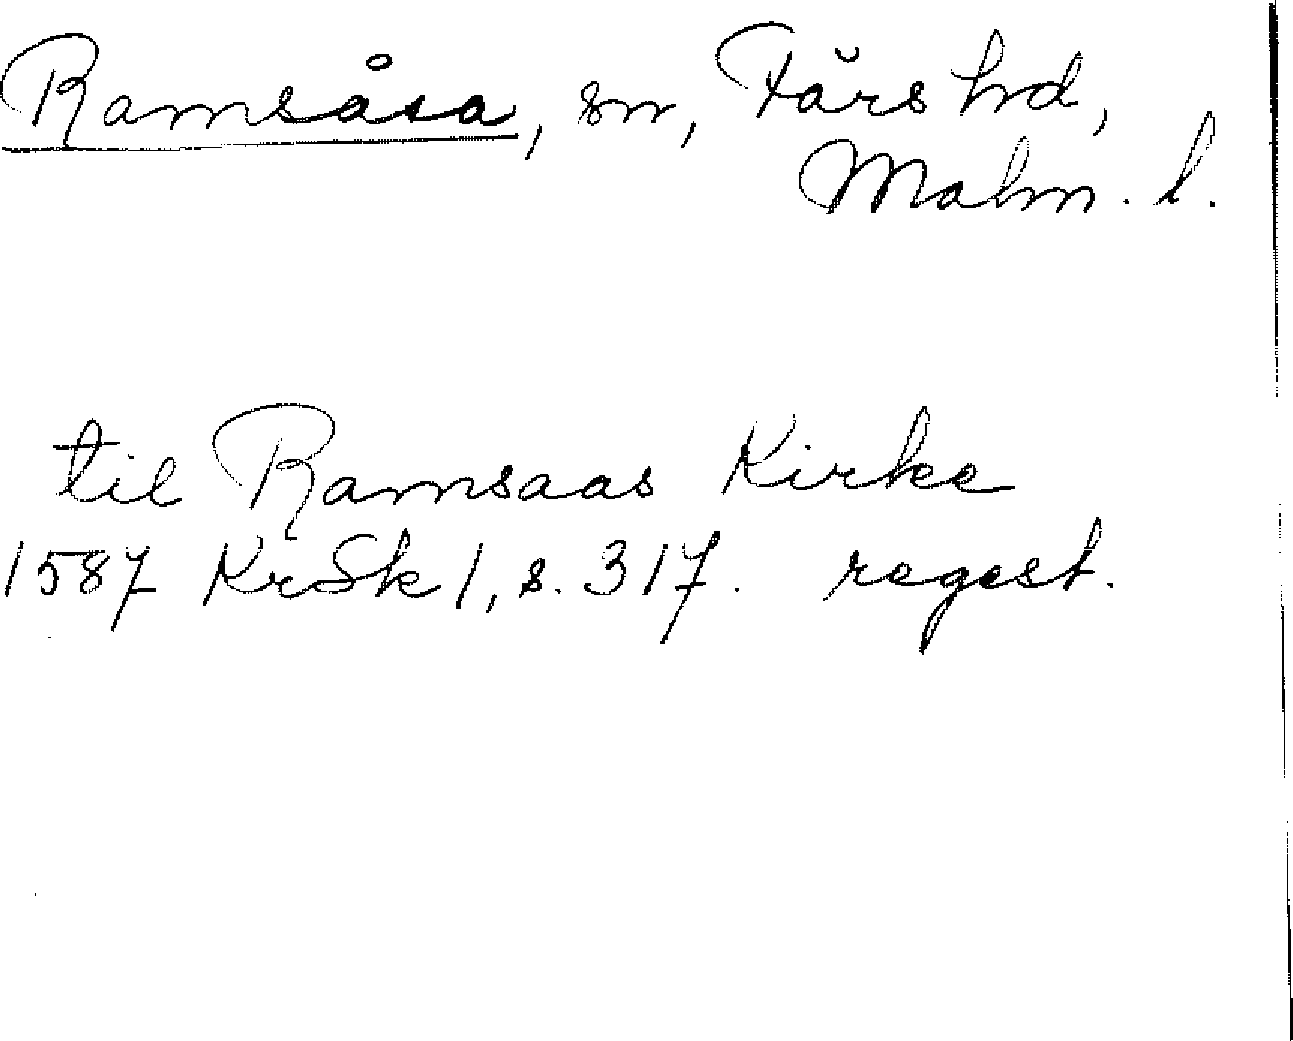 Ramsåsa, sn, Färs hd,
Malm. l.
til Ramsaas Kirke
1587 KrSk 1, s. 317. regest.